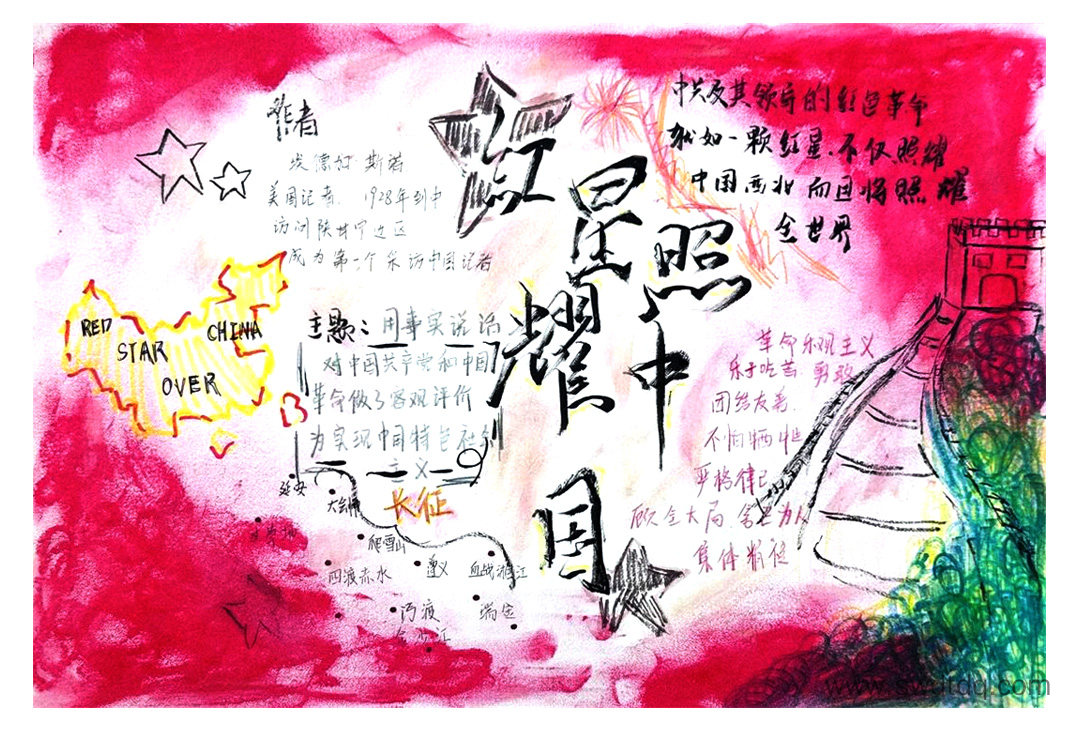 红星照耀中国
作者
埃德加·斯诺
美国记者. 1928年到中
访问陕甘宁边区
成为第一个采访中国记者
中共及其领导的红色革命
就如一颗红星.不仅照耀
中国西北而且将照耀
全世界
RED
STAR
OVER
CHINA
主题：用事实说话
对中国共产党和中国
革命做了客观评价
为实现中国特色社会
主义
革命乐观主义
乐于吃苦.勇敢
团结友善.
不怕牺牲
严格律己
顾全大局.舍己为人
集体精征
长征
延安
大会师
爬雪山
四渡赤水
遵义
血战湘江
巧渡
金沙江
瑞金
www.swutdq.com